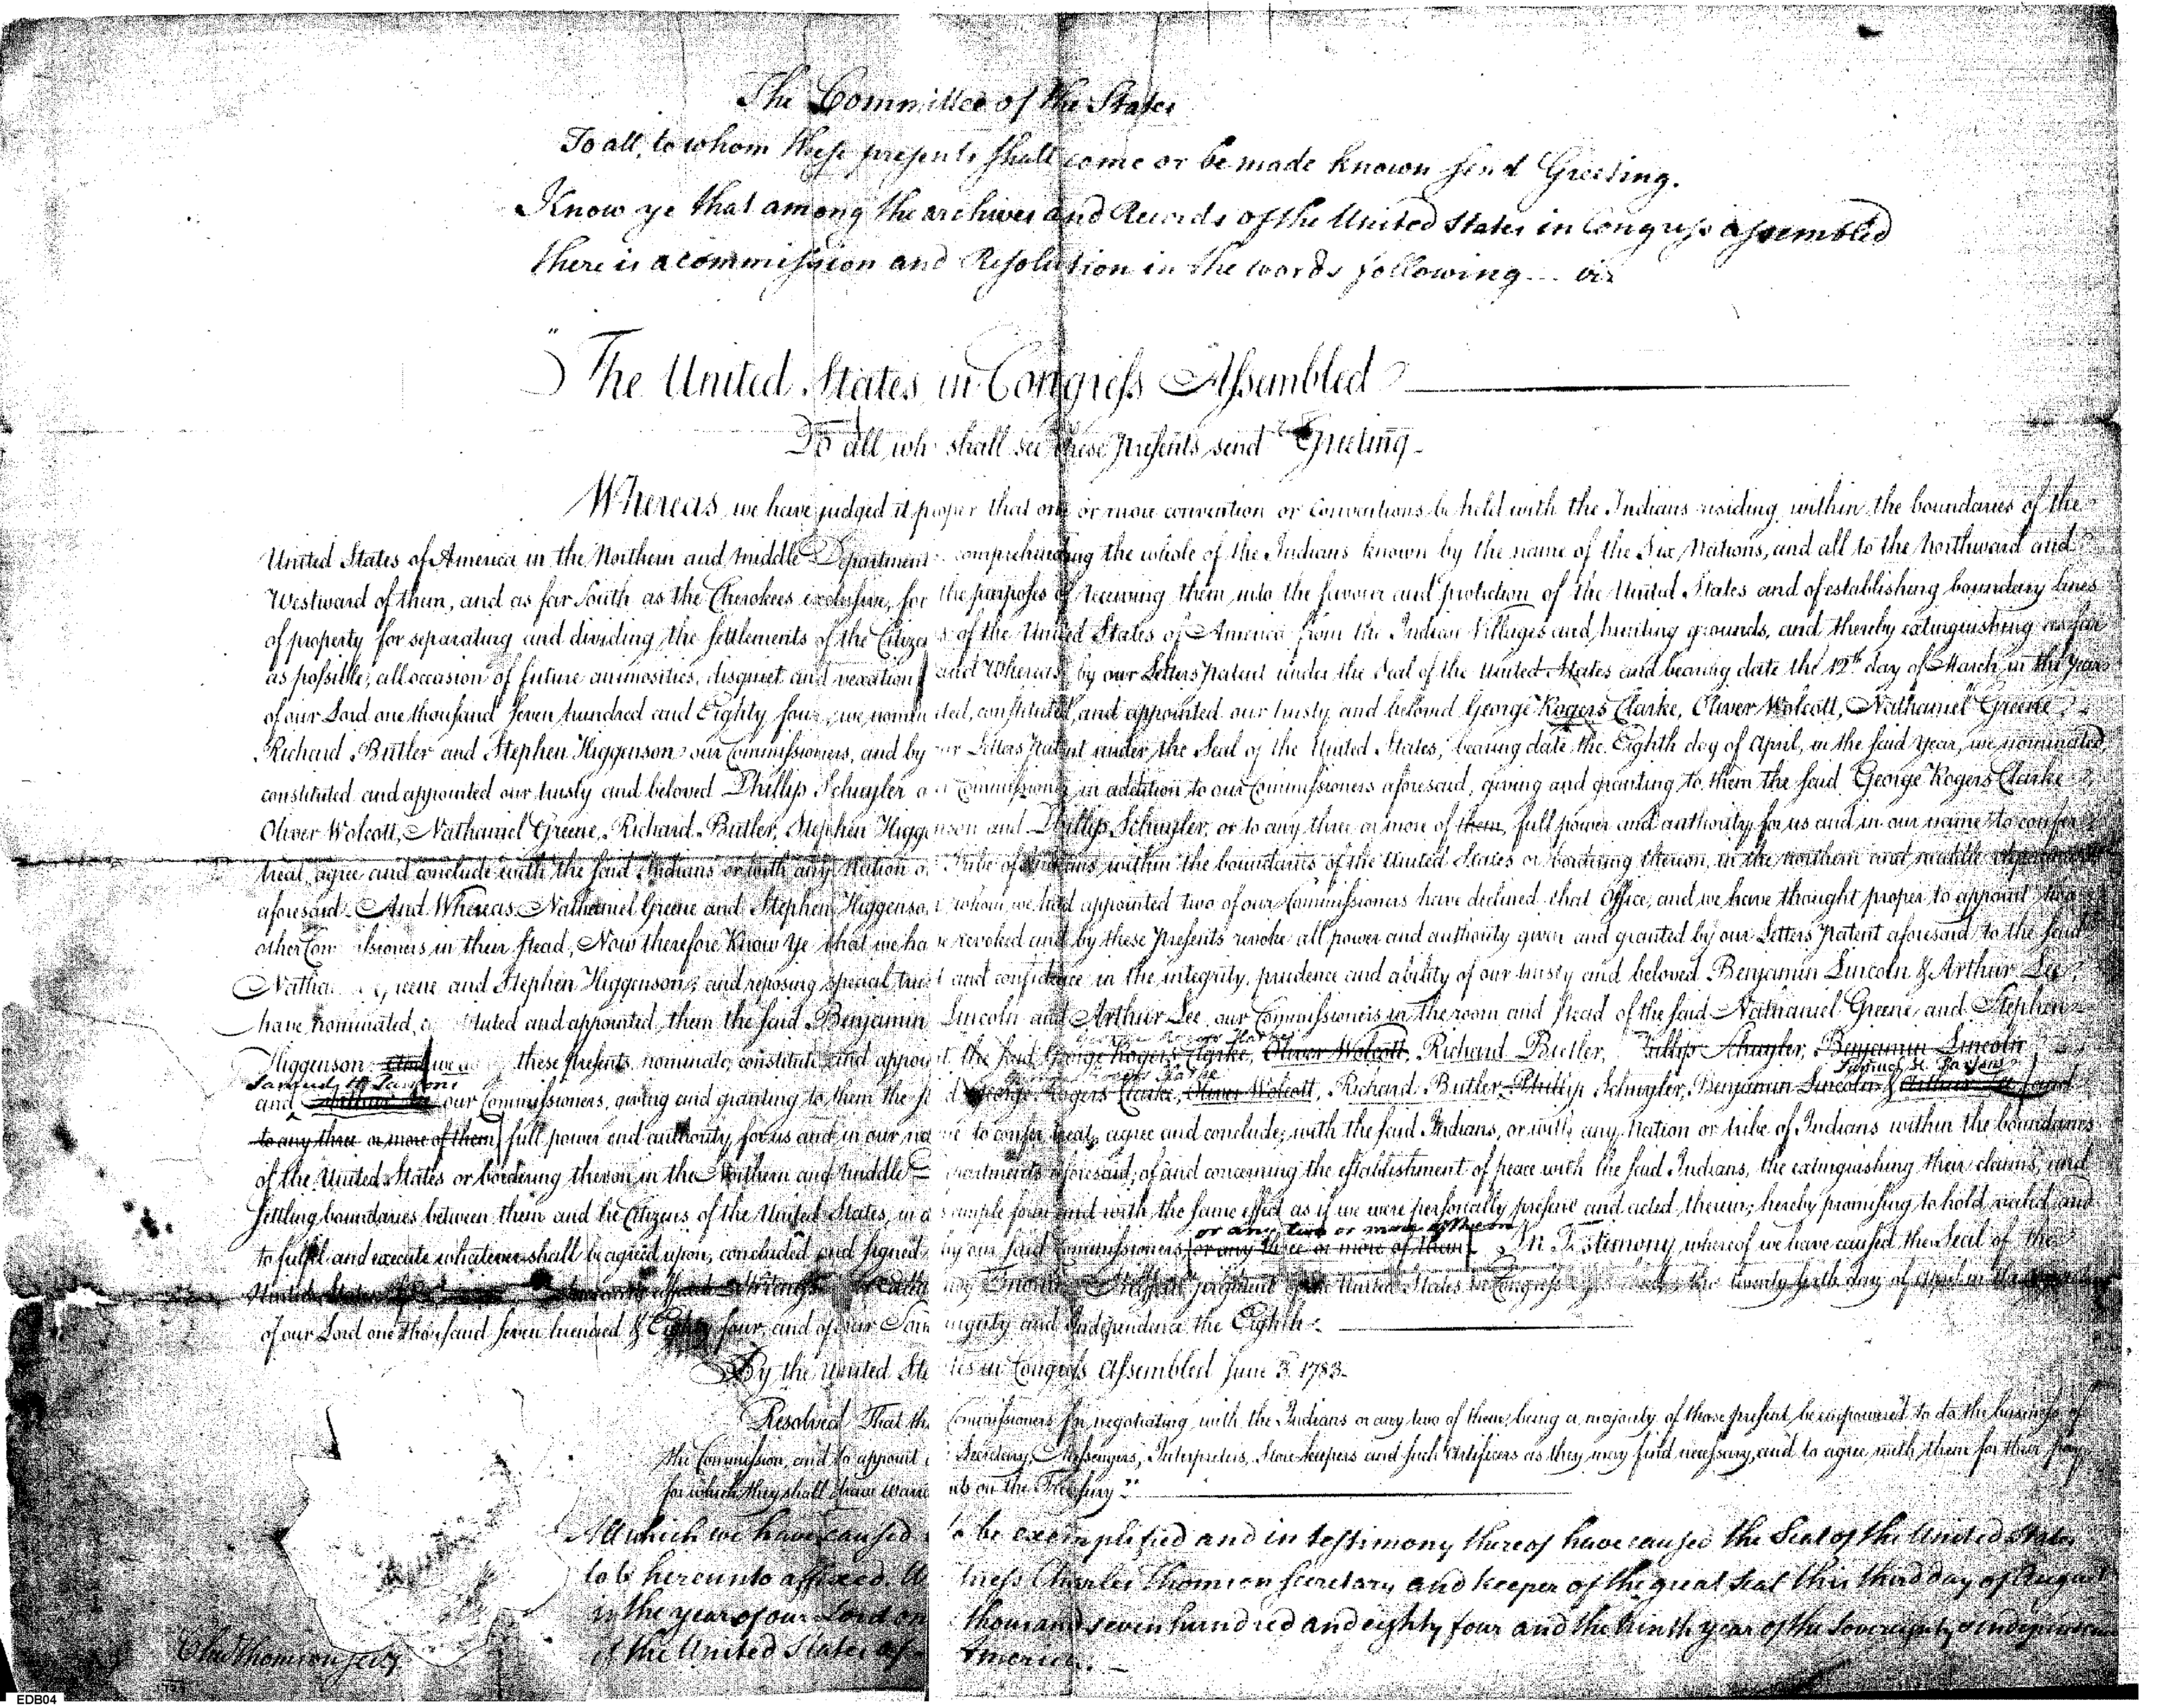 The Committee of the States
To all, to whom these presents shall come or be made known send Greeting.
Know ye that among the archives and Records of the United States in Congress assembled
there is a commission and Resolution in the words following viz
" The United States in Congress Assembled
To all who shall see these presents send Greeting
Whereas we have judged it proper that one or more convention or conventions be held with the Indians residing within the boundaries of the
United States of America in the Northern and middle Department comprehending the whole of the Indians known by the name of the Six Nations, and all to the Northward and
Westward of them, and as far South as the Cherokees exclusive, for the purposes of receiving them into the favour and protection of the United States and of establishing boundary lines
of property for separating and dividing the settlements of the Citizens of the United States of America from the Indian Villages and hunting grounds, and thereby extinguishing as far
as possible, all occasion of future animosities, disquiet and vexation and Whereas by our Letters Patent under the Seal of the United States and bearing date the 12th day of March in the Year
of our Lord one thousand seven hundred and Eighty four, we nominated, constituted, and appointed our trusty and beloved George Rogers Clarke, Oliver Wolcott, Nathaniel Greene
Richard Butler and Stephen Higgenson our Commissioners, and by our Letters Patent under the Seal of the United States, bearing date the Eighth day of April, in the said Year, we nominated
constituted and appointed our trusty and beloved Phillip Schuyler a Commissioner in addition to our Commissioners aforesaid, giving and granting to them the said George Rogers Clarke
Oliver Wolcott, Nathaniel Greene, Richard Butler, Stephen Higgenson and Phillip Schuyler, or to any three or more of them, full power and authority for us and in our name to confer
treat, agree and conclude with the said Indians or with any Nation or Tribe of Indians within the boundaries of the United States or bordering thereon in the northern and middle department
aforesaid. And Whereas Nathaniel Greene and Stephen Higgenson whom we had appointed two of our Commissioners have declined that Office, and we have thought proper to appoint two
other Commissioners in their stead, Now therefore Know Ye that we have revoked and by these Presents revoke all power and authority given and granted by our Letters Patent aforesaid to the said
Nathaniel Greene and Stephen Higgenson; and reposing special trust and confidence in the integrity, prudence and ability of our trusty and beloved Benjamin Lincoln & Arthur Lee
have nominated, constituted and appointed, them the said Benjamin Lincoln and Arthur Lee our Commissioners in the room and stead of the said Nathaniel Greene and Stephen
Higgenson. And we do by these Presents, nominate, constitute and appoint the said George Rogers Clarke, Oliver Wolcott, Richard Butler, Phillip Schuyler, Benjamin Lincoln
Samuel H Parsons
and Arthur Lee our Commissioners, giving and granting to them the said George Rogers Clarke, Oliver Wolcott, Richard Butler, Phillip Schuyler, Benjamin Lincoln & Arthur Lee and
to any three or more of them full power and authority, for us and in our name to confer, treat, agree and conclude, with the said Indians, or with any Nation or tribe of Indians within the boundaries
of the United States or bordering thereon in the Northern and middle Departments aforesaid, of and concerning the establishment of peace with the said Indians, the extinguishing their claims, and
settling boundaries between them and the Citizens of the United States, in as ample form and with the same effect as if we were personally present and acted therein; hereby promising to hold valid and
or any two or more of them
to fulfil and execute whatever shall be agreed upon, concluded and signed by our said Commissioners or any three or more of them. In Testimony whereof we have caused the Seal of the
United States to be hereunto affixed Witness President of the United States in Congress the twenty sixth day of April in the
of our Lord one thousand seven hundred & Eighty four, and of our Sovereignty and Independence the Eighth.
By the United States in Congress Assembled June 3. 1783.
Resolved That the Commissioners for negotiating with the Indians or any two of them, being a majority of those present, be impowered to do the business of
the Commission, and to appoint a Secretary, Messengers, Interpreters, Store keepers and such Artificers as they may find necessary, and to agree with them for their pay
for which they shall draw warrants on the Treasury."
All which we have caused to be exemplified and in testimony thereof have caused the Seal of the United States
to be hereunto affixed. Witness Charles Thomson secretary and keeper of the great seal this third day of August
in the year of our Lord one thousand seven hundred and eighty four and the Ninth year of the Sovereignty & Independence
of the United States of America.
Chas Thomson secy
EDB04